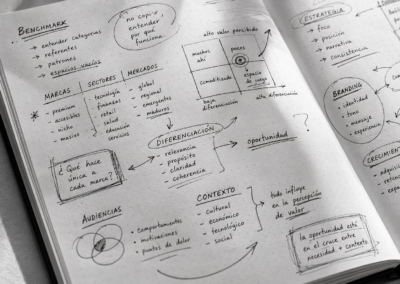 BENCHMARK
→ entender categorías
→ referentes
→ patrones
→ espacios vacíos
no copiar
entender
por qué
funciona
alto valor percibido
muchas
ahí
pocas
espacio
de juego
comoditizado
baja
diferenciación
alta diferenciación
MARCAS
- premium
- accesibles
- nicho
- masivo
SECTORES
- tecnología
- finanzas
- retail
- salud
- educación
- servicios
MERCADOS
- global
- regional
- emergentes
- maduros
DIFERENCIACIÓN
- relevancia
- propósito
- claridad
- coherencia
oportunidad
?
¿Qué hace
única a
cada marca?
AUDIENCIAS
• comportamientos
• motivaciones
• puntos de dolor
CONTEXTO
- cultural
- económico
- tecnológico
- social
todo influye
en la percepción
de valor
la oportunidad está
en el cruce entre
necesidad + contexto
ESTRATEGIA
→ foco
→ posición
→ narrativa
→ consistencia
BRANDING
- identidad
- tono
- mensaje
- experiencia